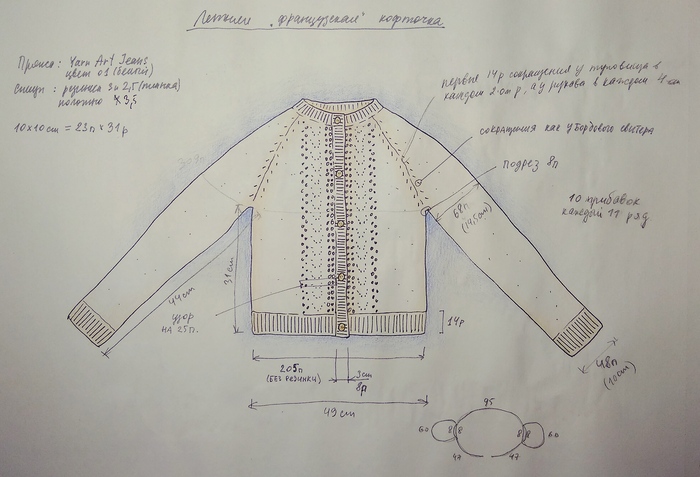 Летняя „французская" кофточка
Пряжа: Yarn Art Jeans
цвет 01 (белый)
Спицы: резинка 3 и 2,5 (планка)
полотно 3,5
10x10 cm = 23п x 31р
первые 14р сокращения у туловища в
каждом 2-ом р, а у рукава в каждом 4-ом
сокращения как у бордового свитера
подрез 8п
10 прибавок
каждый 11 ряд
68п
(14,5cm)
31cm
44cm
узор
на 25п.
14р
205п
(БЕЗ РЕЗИНКИ)
3cm
8р
48п
(10cm)
49cm
95
60
8
8
8
8
60
47
47